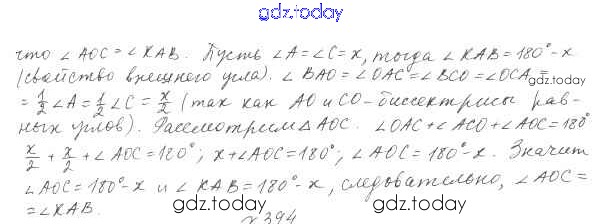 gdz.today
что ∠AOC = ∠KAB. Пусть ∠A = ∠C = x, тогда ∠KAB = 180° - x
(свойство внешнего угла). ∠BAO = ∠OAC = ∠BCO = ∠OCA =
gdz.today
= 1/2 ∠A = 1/2 ∠C = x/2 (так как AO и CO - биссектрисы рав-
ных углов). Рассмотрим △AOC. ∠OAC + ∠ACO + ∠AOC = 180°
x/2 + x/2 + ∠AOC = 180°; x + ∠AOC = 180°; ∠AOC = 180° - x. Значит
∠AOC = 180° - x и ∠KAB = 180° - x, следовательно, ∠AOC =
= ∠KAB.
gdz.today
gdz.today
№394